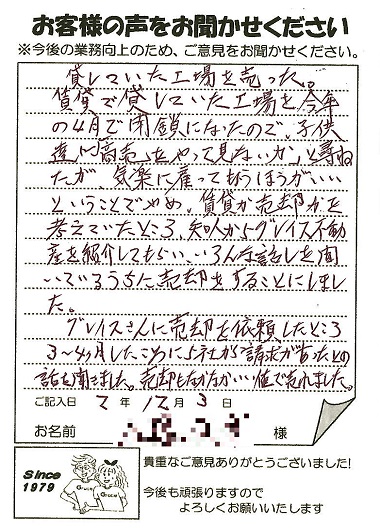 お客様の声をお聞かせください
※今後の業務向上のため、ご意見をお聞かせください。
貸していた工場を売った。
賃貸で貸していた工場を今年
の4月で閉鎖になったので、子供
達に「商売をやって見ないか」と尋ね
たが、気楽に雇ってもらうほうがいい
ということでやめ、賃貸か売却かを
考えていたところ、知人からグレイス不動
産を紹介してもらい、いろんな話しを聞
いているうちに売却をすることにしまし
た。
グレイスさんに売却を依頼したところ
3〜4ヶ月したころに5社から請求があったとの
話を聞きました。売却もなかなかいい値で売れました。
ご記入日 2年 12月 3日
お名前 様
Since
1979
貴重なご意見ありがとうございました!
今後も頑張りますので
よろしくお願いいたします